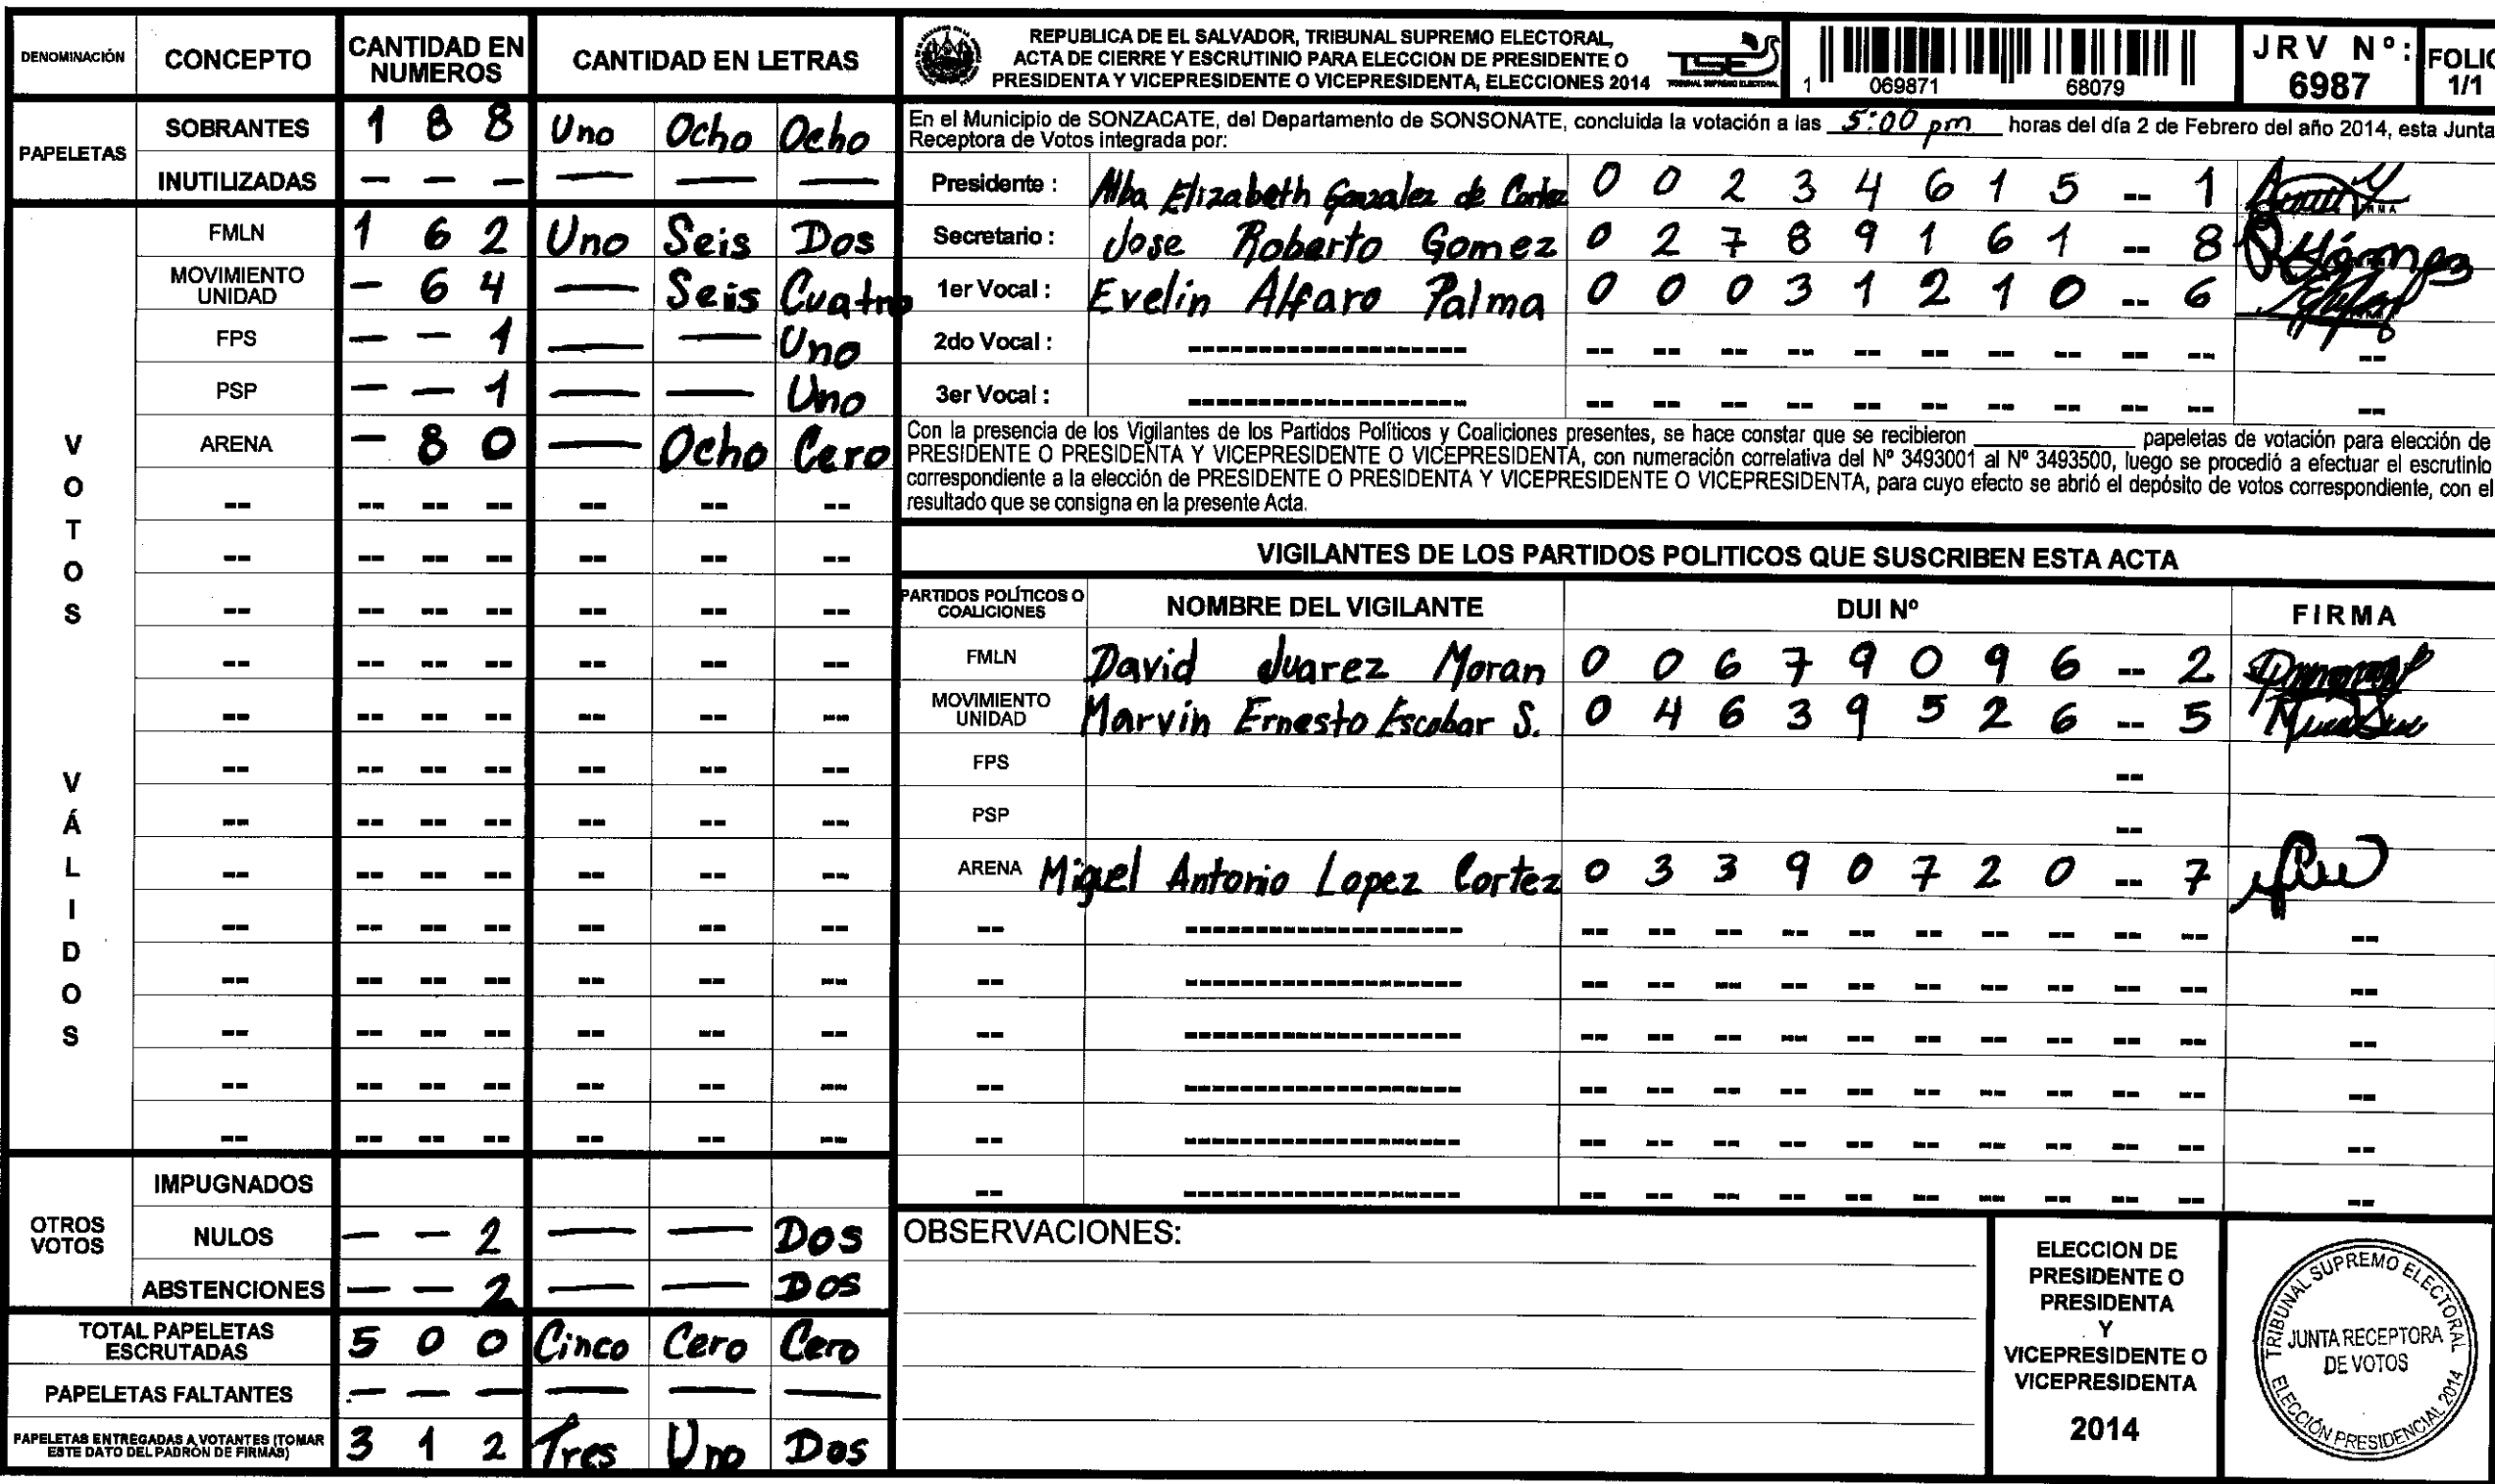 DENOMINACIÓN CONCEPTO CANTIDAD EN NUMEROS CANTIDAD EN LETRAS
PAPELETAS
SOBRANTES 1 8 8 Uno Ocho Ocho
INUTILIZADAS — — — — — —
VOTOS VÁLIDOS
FMLN 1 6 2 Uno Seis Dos
MOVIMIENTO UNIDAD — 6 4 — Seis Cuatro
FPS — — 1 — — Uno
PSP — — 1 — — Uno
ARENA — 8 0 — Ocho Cero
-- -- -- -- -- -- --
-- -- -- -- -- -- --
-- -- -- -- -- -- --
-- -- -- -- -- -- --
-- -- -- -- -- -- --
-- -- -- -- -- -- --
-- -- -- -- -- -- --
-- -- -- -- -- -- --
-- -- -- -- -- -- --
-- -- -- -- -- -- --
-- -- -- -- -- -- --
-- -- -- -- -- -- --
-- -- -- -- -- -- --
OTROS VOTOS
IMPUGNADOS
NULOS — — 2 — — Dos
ABSTENCIONES — — 2 — — Dos
TOTAL PAPELETAS ESCRUTADAS 5 0 0 Cinco Cero Cero
PAPELETAS FALTANTES — — — — — —
PAPELETAS ENTREGADAS A VOTANTES (TOMAR ESTE DATO DEL PADRÓN DE FIRMAS) 3 1 2 Tres Uno Dos
REPUBLICA DE EL SALVADOR, TRIBUNAL SUPREMO ELECTORAL,
ACTA DE CIERRE Y ESCRUTINIO PARA ELECCION DE PRESIDENTE O
PRESIDENTA Y VICEPRESIDENTE O VICEPRESIDENTA, ELECCIONES 2014
TSE
TRIBUNAL SUPREMO ELECTORAL
1 069871 68079
JRV Nº: 6987
FOLIO 1/1
En el Municipio de SONZACATE, del Departamento de SONSONATE, concluida la votación a las 5:00 pm horas del día 2 de Febrero del año 2014, esta Junta
Receptora de Votos integrada por:
Presidente : Alba Elizabeth Gonzalez de Cortez 0 0 2 3 4 6 1 5 -- 1
Secretario : Jose Roberto Gomez 0 2 7 8 9 1 6 1 -- 8
1er Vocal : Evelin Alfaro Palma 0 0 0 3 1 2 1 0 -- 6
2do Vocal : ------------------ -- -- -- -- -- -- -- -- -- -- --
3er Vocal : ------------------ -- -- -- -- -- -- -- -- -- -- --
Con la presencia de los Vigilantes de los Partidos Políticos y Coaliciones presentes, se hace constar que se recibieron ________ papeletas de votación para elección de
PRESIDENTE O PRESIDENTA Y VICEPRESIDENTE O VICEPRESIDENTA, con numeración correlativa del Nº 3493001 al Nº 3493500, luego se procedió a efectuar el escrutinio
correspondiente a la elección de PRESIDENTE O PRESIDENTA Y VICEPRESIDENTE O VICEPRESIDENTA, para cuyo efecto se abrió el depósito de votos correspondiente, con el
resultado que se consigna en la presente Acta.
VIGILANTES DE LOS PARTIDOS POLITICOS QUE SUSCRIBEN ESTA ACTA
PARTIDOS POLÍTICOS O COALICIONES NOMBRE DEL VIGILANTE DUI Nº FIRMA
FMLN David Juarez Moran 0 0 6 7 9 0 9 6 -- 2
MOVIMIENTO UNIDAD Marvin Ernesto Escobar S. 0 4 6 3 9 5 2 6 -- 5
FPS --
PSP --
ARENA Miguel Antonio Lopez Cortez 0 3 3 9 0 7 2 0 -- 7
-- ------------------ -- -- -- -- -- -- -- -- -- -- --
-- ------------------ -- -- -- -- -- -- -- -- -- -- --
-- ------------------ -- -- -- -- -- -- -- -- -- -- --
-- ------------------ -- -- -- -- -- -- -- -- -- -- --
-- ------------------ -- -- -- -- -- -- -- -- -- -- --
-- ------------------ -- -- -- -- -- -- -- -- -- -- --
OBSERVACIONES:
ELECCION DE
PRESIDENTE O
PRESIDENTA
Y
VICEPRESIDENTE O
VICEPRESIDENTA
2014
TRIBUNAL SUPREMO ELECTORAL
JUNTA RECEPTORA
DE VOTOS
ELECCIÓN PRESIDENCIAL 2014